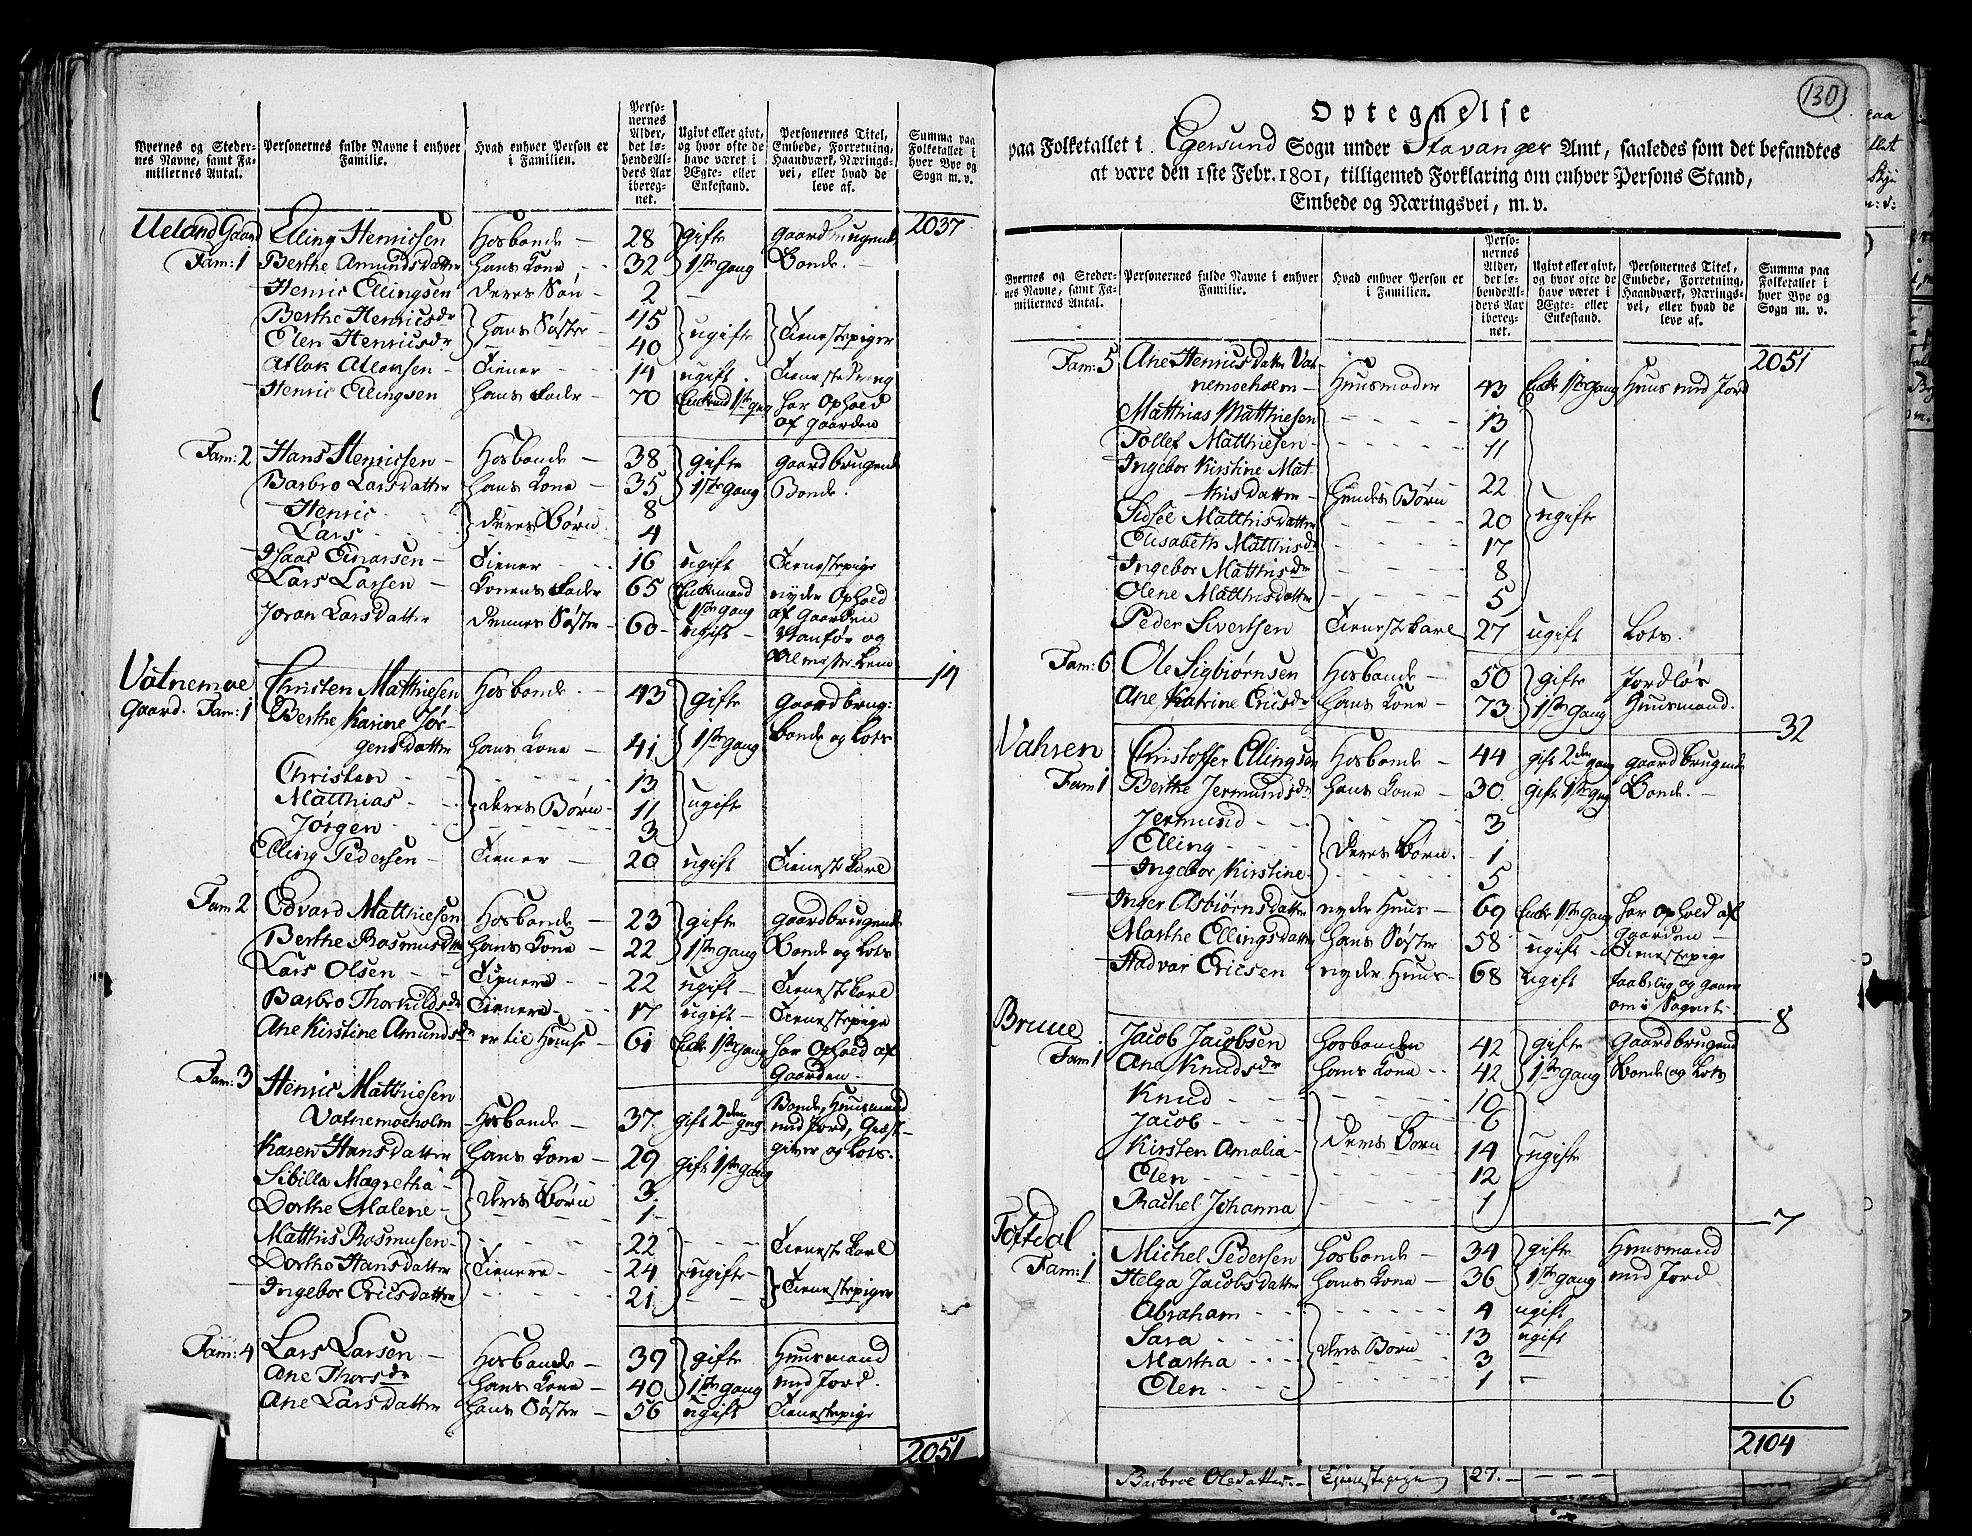 Byernes og Stedernes Navne, samt Familiernes Antal. Personernes fulde Navne i enhver Familie. Hvad enhver Person er i Familien. Personernes Alder, det løbende Alders Aar iberegnet. Ugivt eller givt, og hvor ofte de have været i Ægte- eller Enkestand. Personernes Titel, Embede, Forretning, Haandværk, Næringsvei, eller hvad de leve af. Summa paa Folketallet i hver Bye og Sogn m. v.
2037
Ueland Gaard Elling Henricsen Hosbonde 28 gifte Gaardbrugende
Fam: 1 Berthe Amundsdatter Hans Kone 32 1ste Gang Bonde.
Henric Ellingsen Deres Søn 2
Berthe Henricsdr 45
Elen Henricsdr Hans Søster 40 ugifte Tienestepiger
Atlak Atlaksen Tiener 14 ugift. Tienestedreng
Henric Ellingsen Hans Fader 70 Enkemd 1ste gag har Ophold
af Gaarden
Fam: 2 Hans Henricsen Hosbonde 38 gifte Gaardbrugende
Barbro Larsdatter Hans Kone 35 1ste Gang Bonde.
Henric 8
Lars Deres Børn 4
Isaac Einarsen Tiener 16 ugift Tienestepige
Lars Larsen Konens Fader 65 Enkemand nyder Ophold
1ste Gang af Gaarden
Joran Larsdatter Dennes Søster 60 ugift Vanfør og
Almisse Lem
14
Vatnemoe Christen Matthiesen Hosbonde 43 gifte Gaardbrug:
Gaard. Fam: 1 Berthe Karine Jør-
gensdatter Hans Kone 41 1ste Gang Bonde og Lots
Christen 13
Matthias Deres Børn 11 ugifte
Jørgen 3
Elling Pedersen Tiener 20 ugift Tieneste Karl
Fam: 2 Edvard Matthiesen Hosbonde 23 gifte Gaardbrugende
Berthe Rasmusdatter Hans Kone 22 1ste Gang Bonde og Lots
Lars Olsen Tienere 22 ugift Tieneste Karl
Barbro Thorkildsdr Tienere 17 ugift Tienestepige
Ane Kirstine Amundsdr er til Huuse 61 Enke 1ste Gang har Ophold af
Gaarden.
Fam: 3 Henric Matthiesen
Vatnemoeholm Hosbonde 37. gift 2den gag Bonde, Huusmand
med Jord, Giæst-
Karen Hansdatter Hans Kone 29 gift 1ste Gang giver og Lots.
Sibilla Magretha 3
Dorthe Malene Deres Børn 1
Matthis Rasmusen 22 Tieneste Karl
Dorthe Hansdatter Tienere 24 ugifte
Ingebor Ericsdatter 21 Tienestepiger
Fam: 4 Lars Larsen Hosbonde 39 gifte Huusmand
Ane Thorsdr Hans Kone 40 1ste Gang med Jord.
Ane Larsdatter Hans Søster 56 ugift Tienestepige
2051
130
Optegnelse
paa Folketallet i Egersund Sogn under Stavanger Amt, saaledes som det befandtes
at være den 1ste Febr. 1801, tilligemed Forklaring om enhver Persons Stand,
Embede og Næringsvei, m. v.
Byernes og Stedernes Navne, samt Familiernes Antal. Personernes fulde Navne i enhver Familie. Hvad enhver Person er i Familien. Personernes Alder, det løbende Alders Aar iberegnet. Ugivt eller givt, og hvor ofte de have været i Ægte- eller Enkestand. Personernes Titel, Embede, Forretning, Haandværk, Næringsvei, eller hvad de leve af. Summa paa Folketallet i hver Bye og Sogn m. v.
2051
Fam: 5 Ane Henricsdatter Vat-
nemoeholm Huusmoder 43 Enke 1ste Gang Huus med Jord
Matthias Matthiesen 13
Tollef Matthiesen 11
Ingebor Kirstine Mat-
thisdatter Hendes Børn 22
Sidsel Matthisdatter 20 ugifte
Elisabeth Matthisdr 17
Ingebor Matthisdr 8
Olene Matthisdatter 5
Peder Sivertsen Tieneste Karl 27 ugift Lots.
Fam: 6 Ole Sigbiørnsen Hosbonde 50 gifte Jordløs
Ane Katrine Ericsdr Hans Kone 73 1ste Gang Huusmand.
32
Vahsen Christoffer Ellingsen Hosbonde 44 gift 2den Gang Gaardbrugende
Fam: 1 Berthe Jermundsdr Hans Kone 30 gift 1ste gag Bonde.
Jermund 3
Elling Deres Børn. 1
Ingebor Kirstine 5
Inger Asbiørnsdatter nyder Huus 69 Enke 1ste Gang har Ophold af
Gaarden
Marthe Ellingsdatter Hans Søster 58 ugift Tienestepige
Hadvar Ericsen nyder Huus 68 ugift faabelig og gaaer
om i Sognet
8
Bruue Jacob Jacobsen Hosbonden 42 gifte Gaardbrugend
Fam: 1 Ane Knudsdr Hans Kone 42 1ste Gang Bonde og Lots
Knud 10
Jacob 6
Kirsten Amalia Deres Børn 14 ugifte
Elen 12
Rachel Johanna 1
7
Toftdal Michel Pedersen Hosbonde 34 gifte Huusmand
Fam: 1 Helga Jacobsdatter Hans Kone 36 1ste Gang med Jord
Abraham 4 ugift
Sara 13 ugift
Martha Deres Børn 3
Elen 1
6
2104
Barbroe Olsdatter Tjenestepige 27.